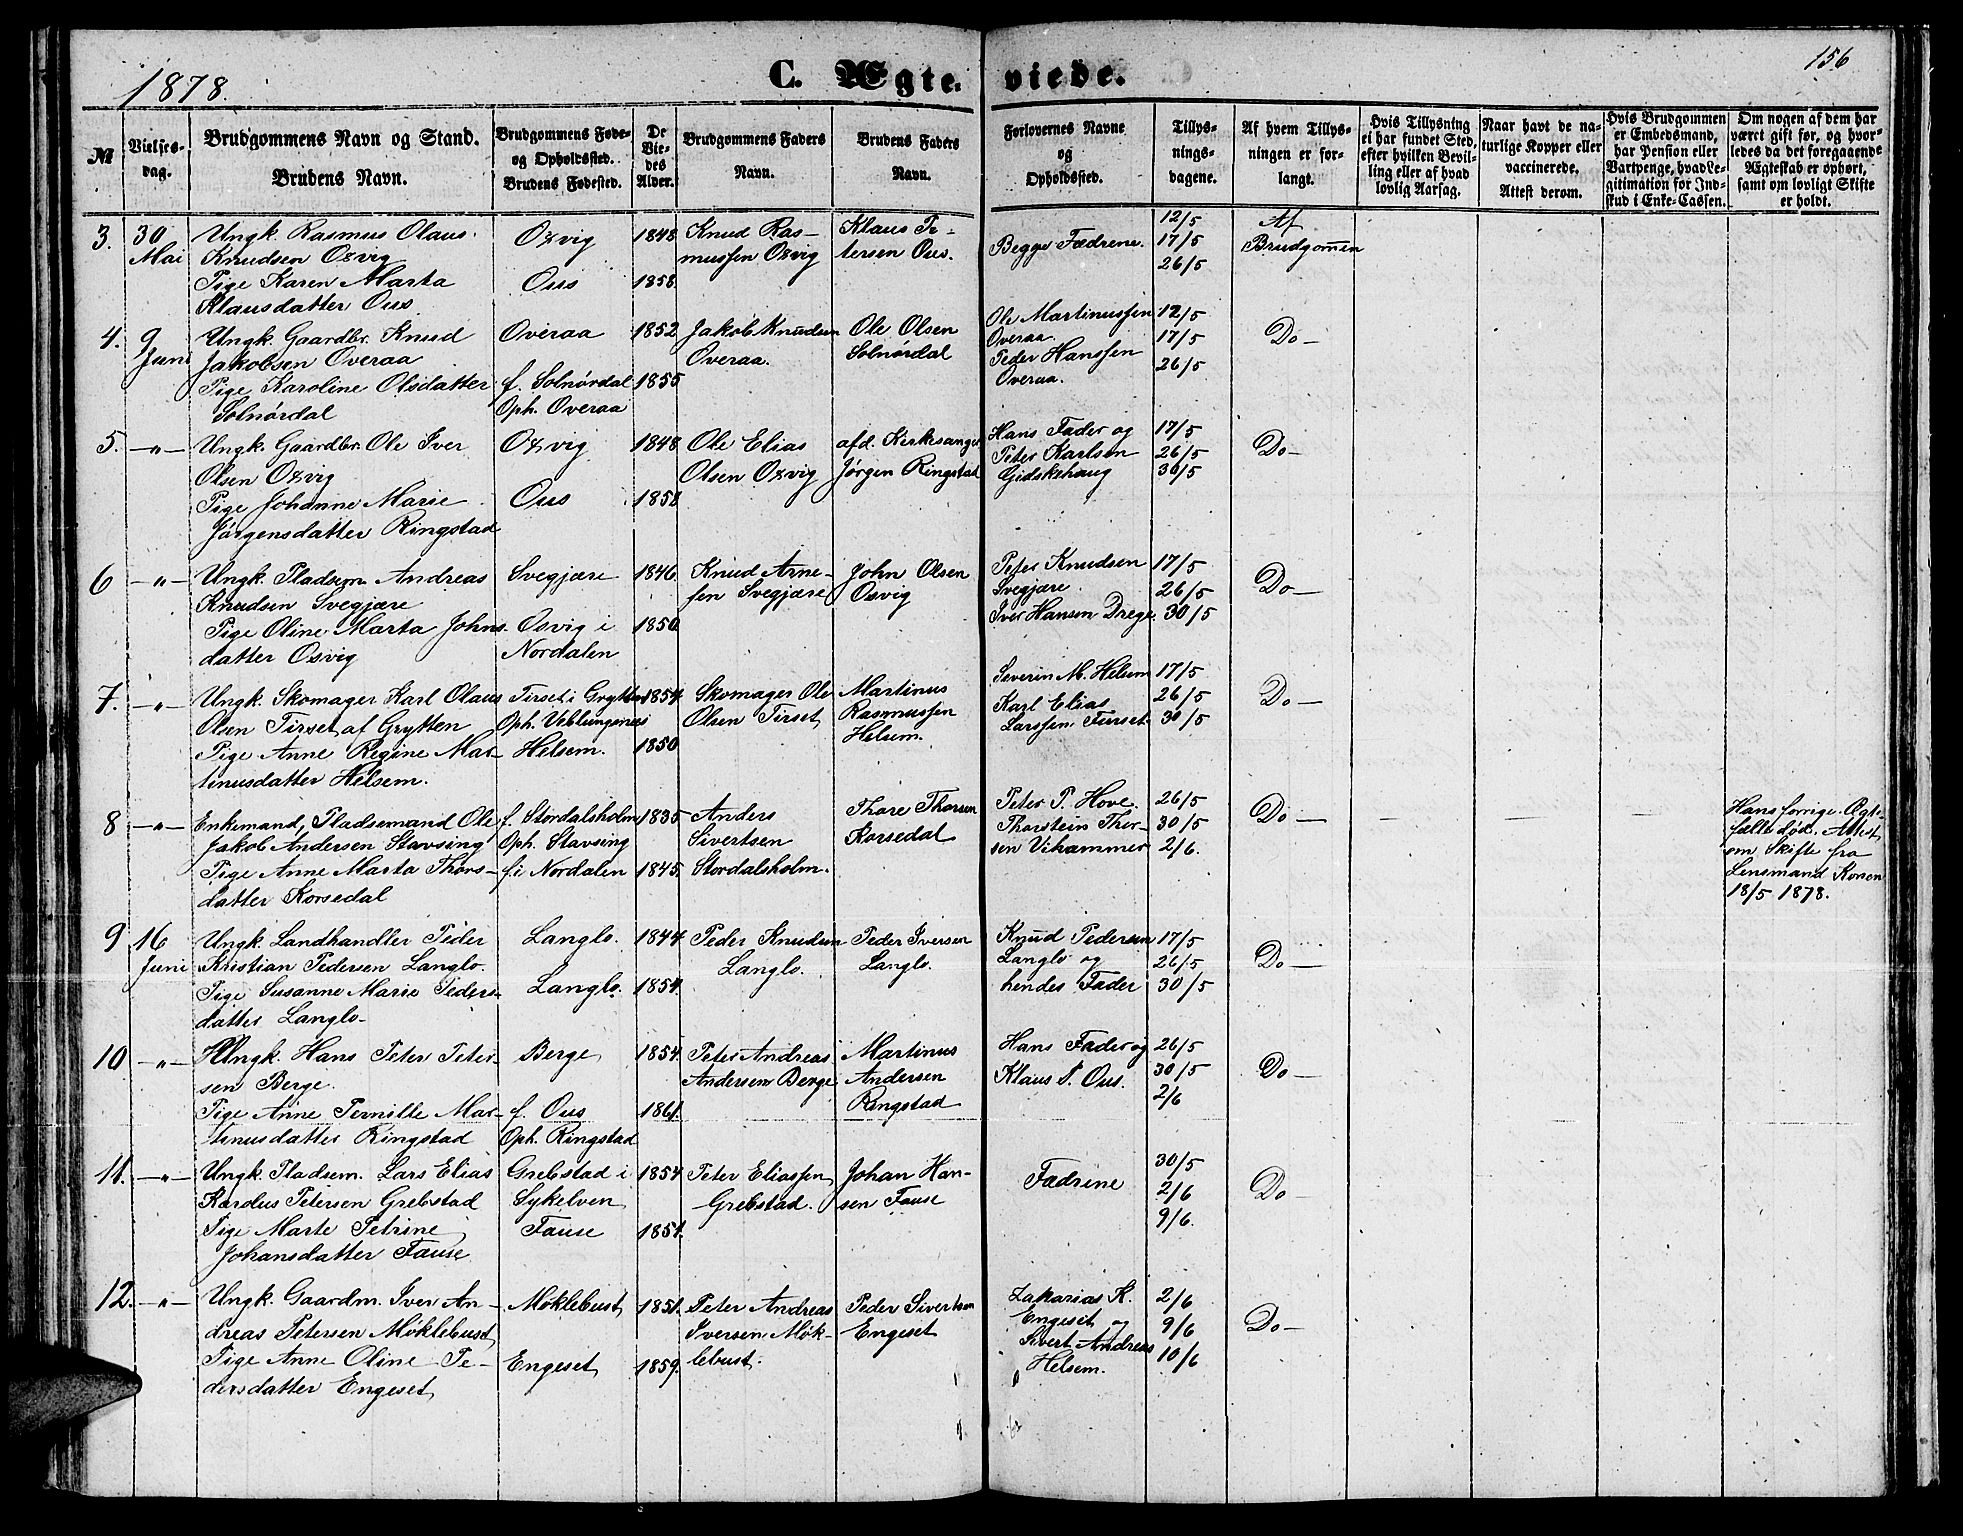 1878.
C. Ægte-viede.
156
№
Vielses-dag.
Brudgommens Navn og Stand.
Brudens Navn.
Brudgommens Føde- og Opholdssted.
Brudens Fødested.
De Viedes Alder.
Brudgommens Faders Navn.
Brudens Faders Navn.
Forlovernes Navne og Opholdssted.
Tillysningsdagene.
Af hvem Tillysningen er forlangt.
Hvis Tillysning ei har fundet Sted, efter hvilken Bevilling eller af hvad lovlig Aarsag.
Naar havt de naturlige Kopper eller vaccinerede.
Attest derom.
Hvis Brudgommen er Embedsmand, har Pension eller Vartpenge, hvad Legitimation for Indskud i Enke-Cassen.
Om nogen af dem har været gift før, og hvorledes da det foregaaende Ægteskab er ophørt, samt om lovligt Skifte er holdt.
3. 30 Mai
Ungk. Rasmus Olaus
Knudsen Oxvig
Pige Karen Marta
Klausdatter Ous
Oxvig
Ous
1848
1858
Knud Ras-
mussen Oxvig
Klaus Pe-
tersen Ous.
Begge Fædrene.
12/5
17/5
26/5
Af
Brudgommen
4. 9 Juni
Ungk. Gaardbr. Knud
Jakobsen Overaa
Pige Karoline Olsdatter
Solnördal
Overaa
f. Solnördal
Oph. Overaa
1852
1855
Jakob Knudsen
Overaa.
Ole Olsen
Solnördal
Ole Martinussen
Overaa.
Peder Hanssen
Overaa.
12/5
17/5
26/5
Do —
5. —"—
Ungk. Gaardbr. Ole Iver
Olsen Oxvig
Pige Johanne Marie
Jørgensdatter Ringstad
Oxvig
Ous
1848
1858
Ole Elias
Olsen Oxvig
afd. Kirkesanger
Jørgen Ringstad
Hans Fader og
Peter Karlsen
Gidskehaug
17/5
26/5
30/5
Do —
6 —"—
Ungk. Pladsem. Andreas
Knudsen Svegjære
Pige Oline Marta Johns-
datter Osvig
Svegjære
Osvig i
Nordalen
1846
1850
Knud Arne-
sen Svegjære
John Olsen
Osvig
Peter Knudsen
Svegjære
Iver Hansen Drege
17/5
26/5
30/5
Do —
7. —"—
Ungk. Skomager Karl Olaus
Olsen Tirset af Grytten
Pige Anne Regine Mar-
tinusdatter Helsem.
Tirset i Grytten
Oph. Veblungsnes
Helsem.
1854
1850
Skomager Ole
Olsen Tirset
Martinus
Rasmussen
Helsem.
Severin M. Helsem
Karl Elias
Larssen Furset
17/5
26/5
30/5
Do —
8 —"—
Enkemand, Pladsemand Ole
Jakob Andersen Stavsing
Pige Anne Marta Thors-
datter Korsedal
f. Stordalsholm
Oph. Stavsing
f. i Nordalen
1835
1845
Anders
Sivertsen
Stordalsholm.
Thore Thorsen
Korsedal
Peter P. Hove.
Thorstein Thor-
sen Vihammer
26/5
30/5
2/6.
Do —
Hans forrige Ægte-
fælle død. Attest
om Skifte fra
Lensmand Korsen
18/5 1878.
9 16 Juni
Ungk. Landhandler Peder
Kristian Pedersen Langlo.
Pige Susanne Marie Peders-
datter Langlo
Langlo.
Langlo.
1844
1854
Peder Knudsen
Langlo.
Peder Iversen
Langlo.
Knud Pedersen
Langlo og
hendes Fader
17/5
26/5
30/5
Do —
10 —"—
Ungk. Hans Peter Peter-
sen Berge.
Pige Anne Pernille Mar-
tinusdatter Ringstad
Berge
f. Ous
Oph. Ringstad
1854
1861
Peter Andreas
Andersen Berge
Martinus
Andersen
Ringstad
Hans Fader og
Klaus P. Ous.
26/5
30/5
2/6
Do —
11. —"—
Ungk. Pladsem. Lars Elias
Kardus Petersen Grebstad
Pige Marte Petrine
Johansdatter Fause
Grebstad i
Sykelven
Fause
1854
1851.
Peter Eliassen
Grebstad.
Johan Han-
sen Fause
Fædrene
30/5
2/6
9/6.
Do —
12. —"—
Ungk. Gaardm. Iver An-
dreas Petersen Møklebust
Pige Anne Oline Pe-
dersdatter Engeset
Møklebust
Engeset
1851.
1859.
Peter Andreas
Iversen Møk-
lebust.
Peder Sivertsen
Engeset
Zakarias K.
Engeset og
Sivert Andreas
Helsem.
2/6
9/6
10/6
Do —